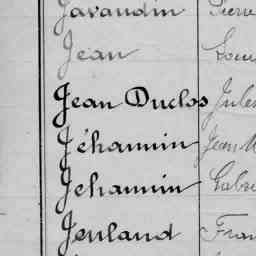 Javaudin Pierre
Jean Louis
Jean Duclos Jules
Jéhannin Jean M
Jehannin Gabri
Jenland Fran